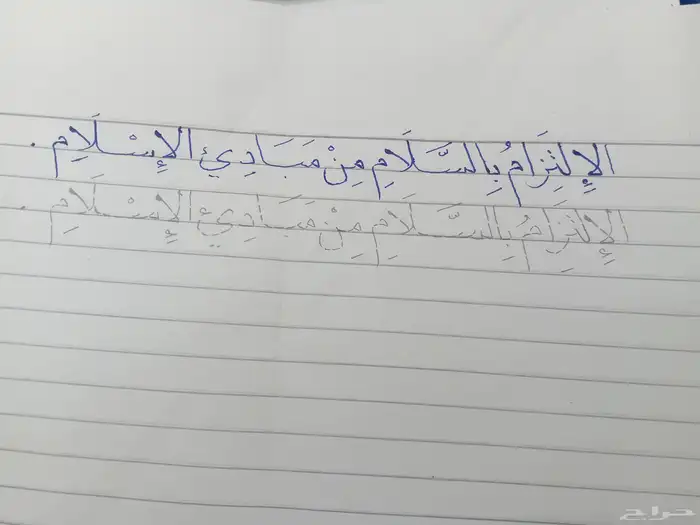 الإِلتِزَامُ بِالسَّلَامِ مِنْ مَبَادِئِ الإِسْلَامِ .
الإِلتِزَامُ بِالسَّلَامِ مِنْ مَبَادِئِ الإِسْلَامِ .
حراج